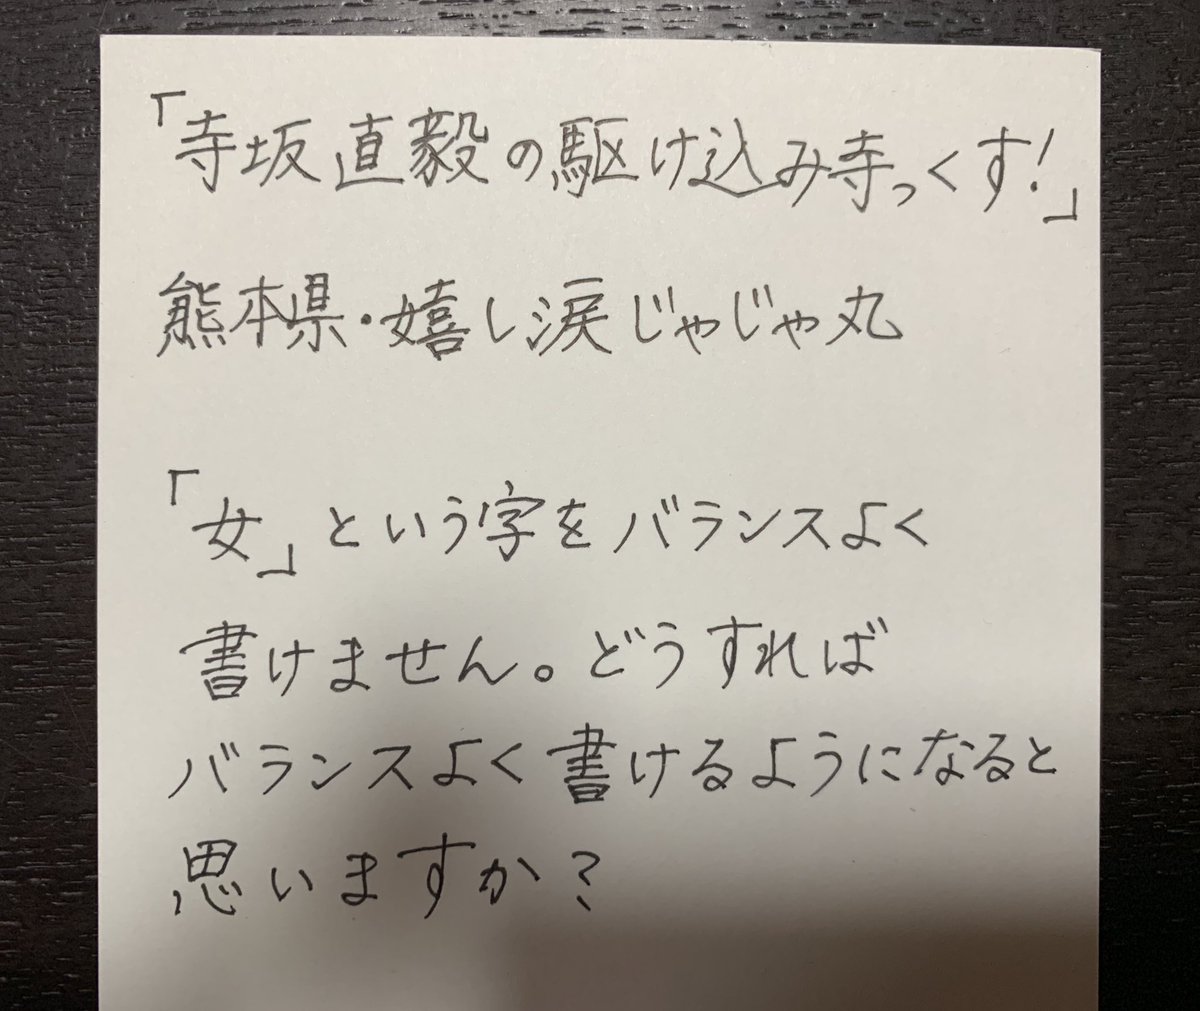 「寺坂直毅の駆け込み寺っくす!」
熊本県・嬉し涙じゃじゃ丸
「女」という字をバランスよく
書けません。どうすれば
バランスよく書けるようになると
思いますか?